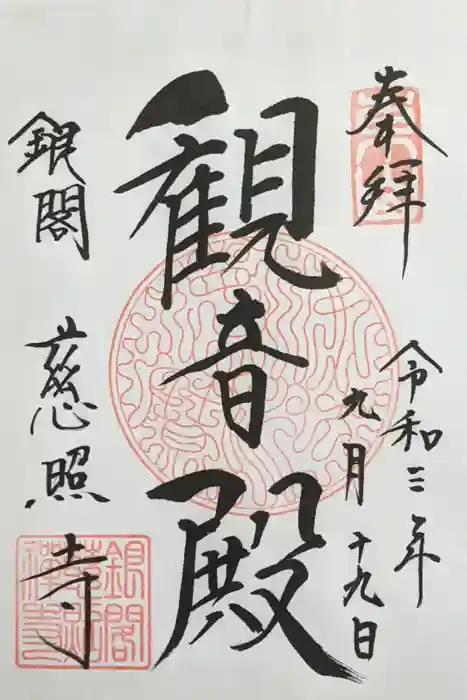 奉拝
令和三年
九月十九日
観音殿
銀閣
慈照寺